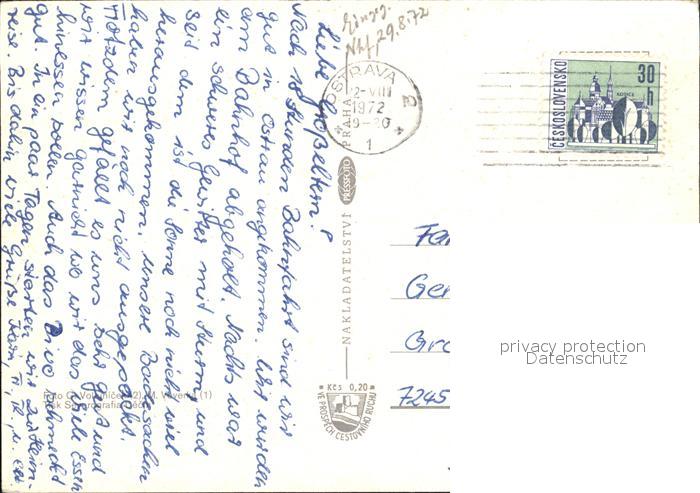 Liebe Großeltern!
Nach 18 Stunden Bahnfahrt sind wir
gut in Ostrau angekommen. Wir wurden
am Bahnhof abgeholt. Nachts war
ein schweres Gewitter mit Sturm und
seit dem ist die Sonne noch nicht viel
herausgekommen, unsere Badesachen
haben wir noch nicht ausgepackt.
Trotzdem gefällt es uns sehr gut und
wir wissen garnicht wo wir das viele Essen
hinessen sollen. Auch das Bivo schmeckt
gut. In ein paar Tagen starten wir zur Heim-
reise. Bis dahin viele Grüße
Eingeg.
29.8.72
OSTRAVA 2
2-VIII
1972
19-20
1
PRAHA
PRESSFOTO
NAKLADATELSTVÍ
ČESKOSLOVENSKO
30 h
KOŠICE
Fa
Ge
Gr
7245
privacy protection
Datenschutz
Kčs 0,20
VE PROSPĚCH CESTOVNÍHO RUCHU
Foto
(1)